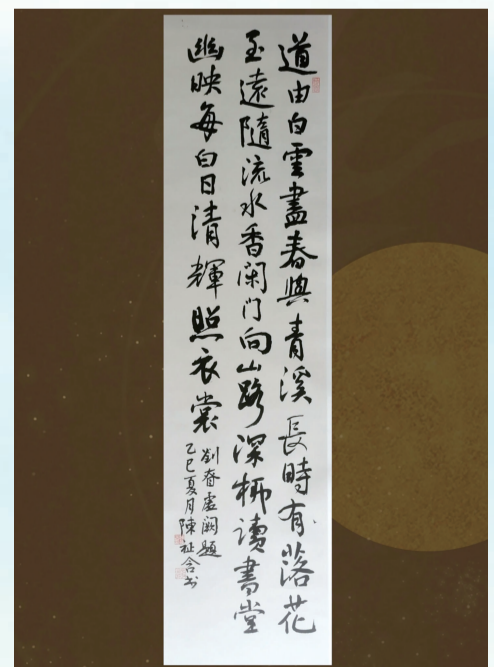 道由白雲盡春與青溪長時有落花
至遠隨流水香闲门向山路深柳讀書堂
幽映每白日清輝照衣裳
劉眘虛闕題
乙巳夏月陳祉含书